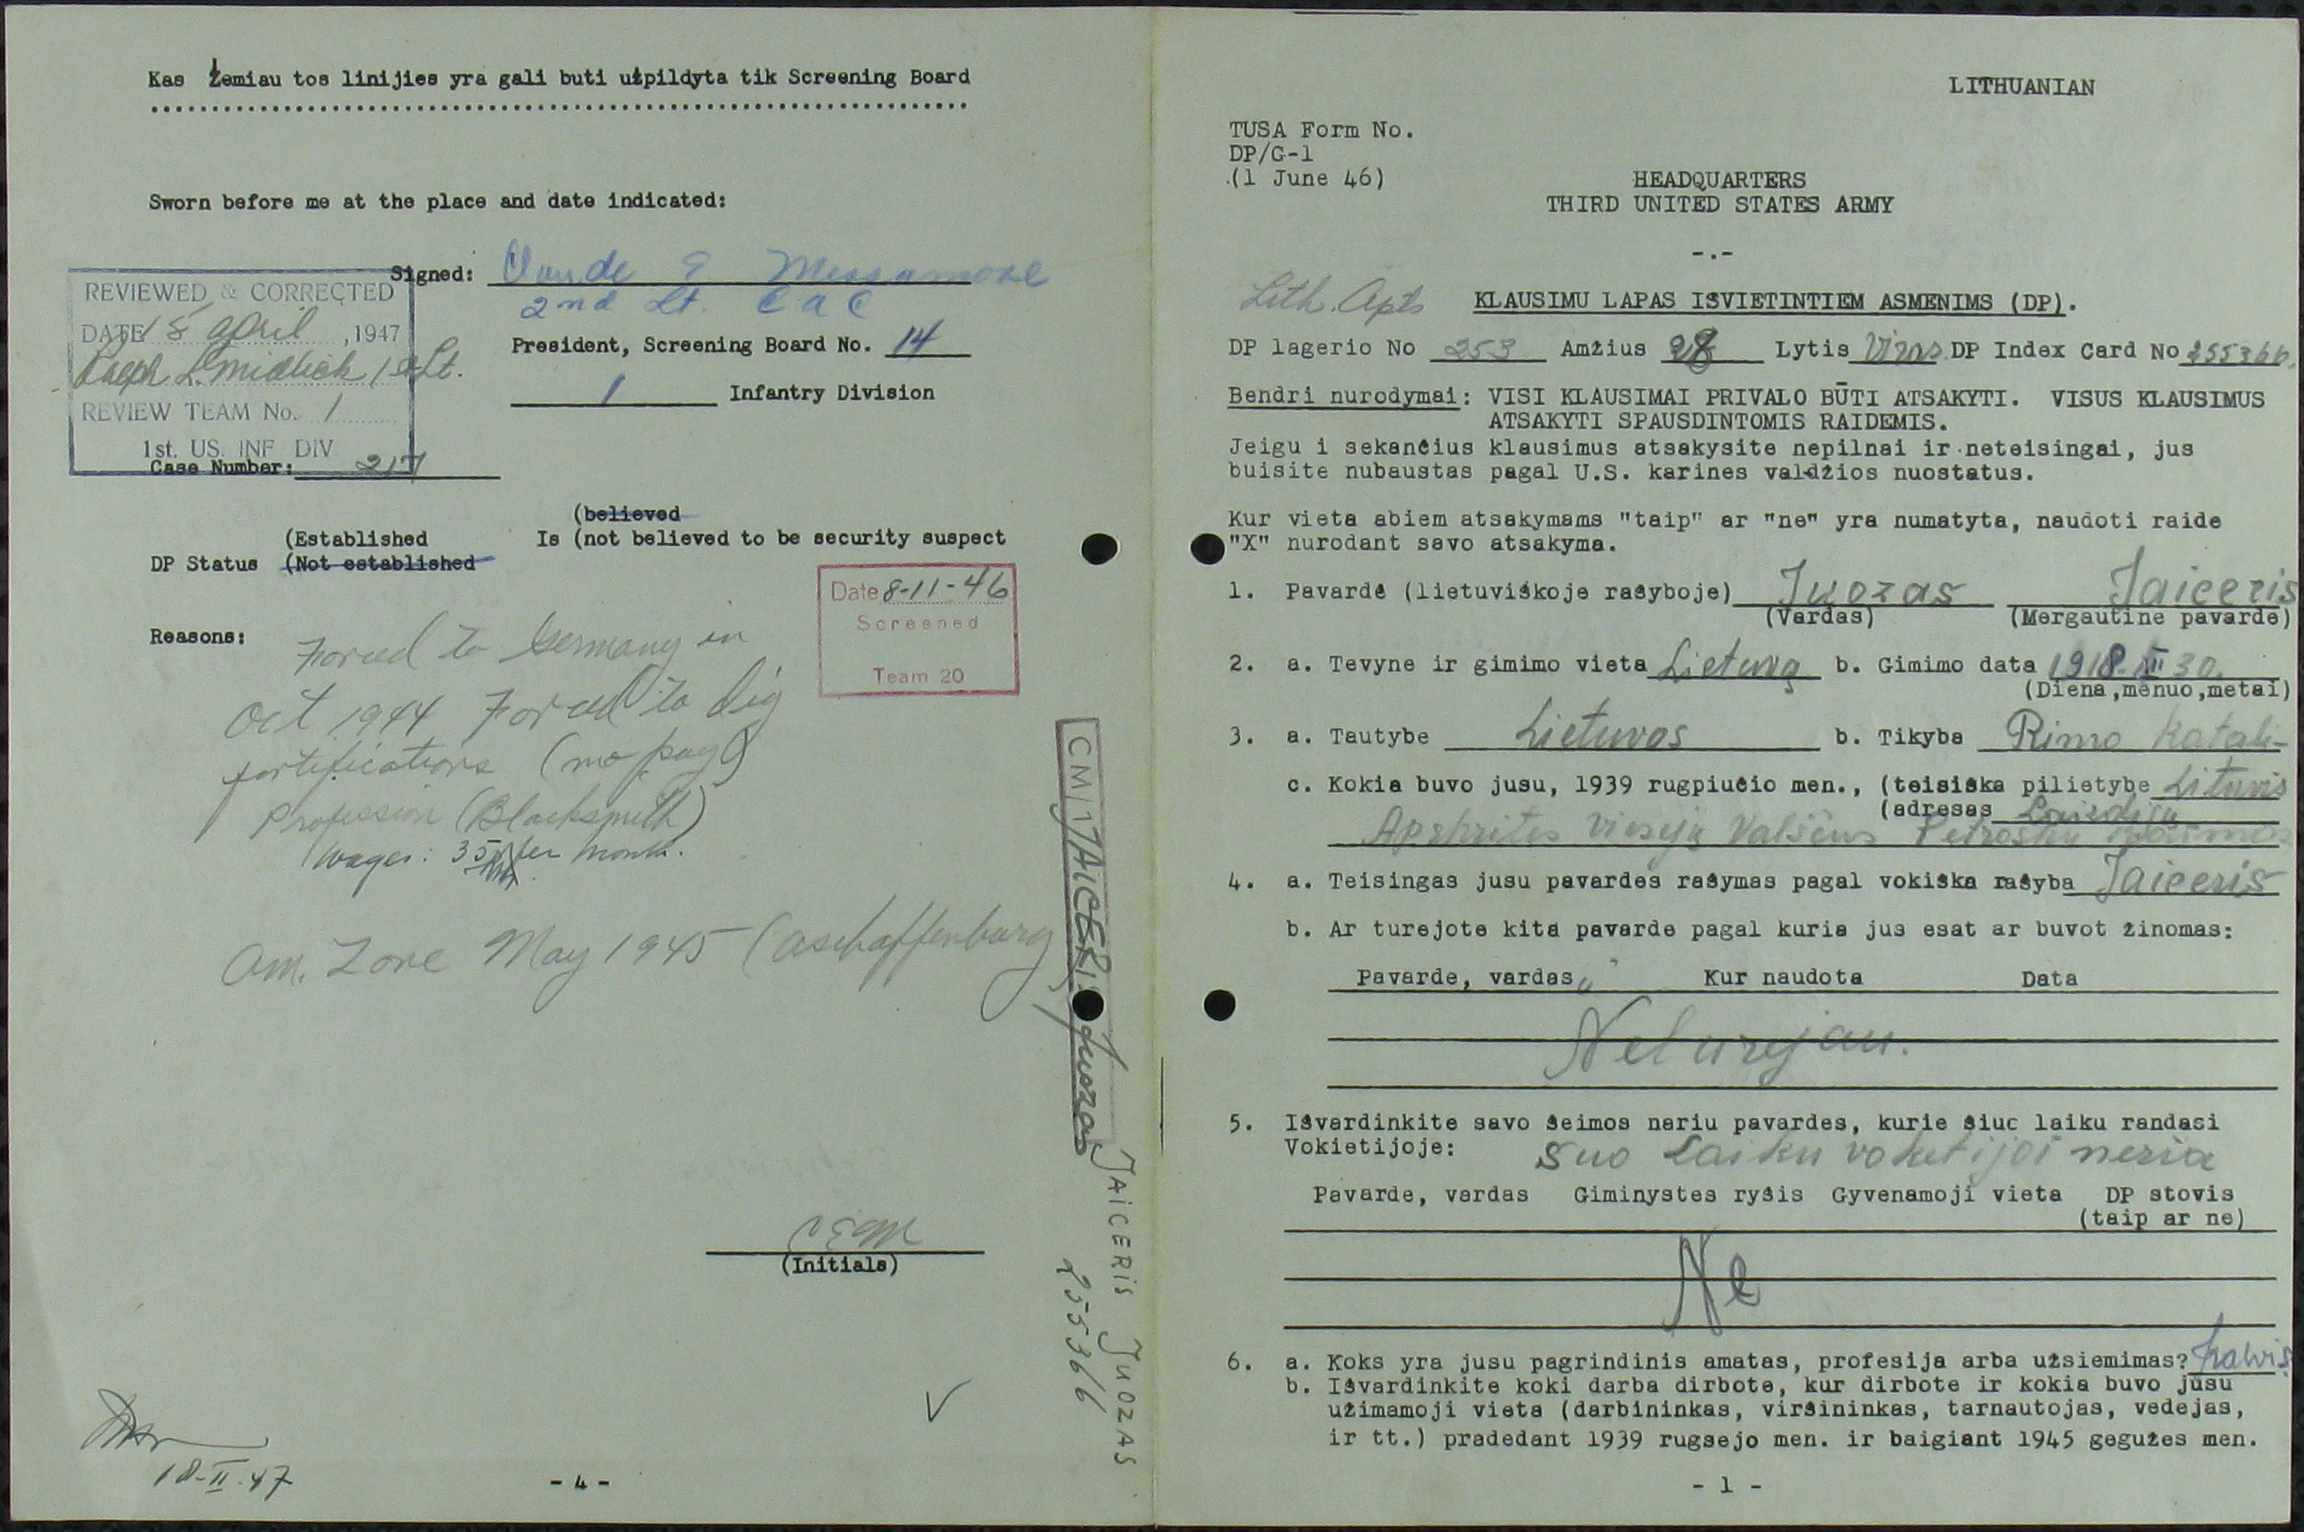 Kas Žemiau tos linijies yra gali buti užpildyta tik Screening Board
Sworn before me at the place and date indicated:
Signed: Claude E Messamore
2nd Lt. C A C
President, Screening Board No. 14
1 Infantry Division
REVIEWED & CORRECTED
DATE 18 April, 1947
Ralph L. 1st Lt.
REVIEW TEAM No. 1
1st. US. INF DIV
Case Number: 217
(believed
(Established Is (not believed to be security suspect
DP Status (Not established
Date 8-11-46
Screened
Team 20
Reasons: Forced to Germany in
Oct 1944 Forced to dig
fortifications (no pay)
Profession (Blacksmith)
Wages: 35 per month.
Am. Zone May 1945 (Aschaffenburg)
CEM
(Initials)
18-II-47
- 4 -
CM/1 JAICERIS Juozas
JAICERIS JUOZAS
255366
LITHUANIAN
TUSA Form No.
DP/G-1
(1 June 46)
HEADQUARTERS
THIRD UNITED STATES ARMY
-.-
Lith. Apts KLAUSIMU LAPAS IŠVIETINTIEM ASMENIMS (DP).
DP lagerio No 253 Amžius 28 Lytis Viras DP Index Card No 255366.
Bendri nurodymai: VISI KLAUSIMAI PRIVALO BŪTI ATSAKYTI. VISUS KLAUSIMUS
ATSAKYTI SPAUSDINTOMIS RAIDEMIS.
Jeigu i sekančius klausimus atsakysite nepilnai ir neteisingai, jus
buisite nubaustas pagal U.S. karines valdžios nuostatus.
Kur vieta abiem atsakymams "taip" ar "ne" yra numatyta, naudoti raide
"X" nurodant savo atsakyma.
1. Pavardė (lietuviškoje rašyboje) Juozas Jaiceris
(Vardas) (Mergautine pavarde)
2. a. Tevyne ir gimimo vieta Lietuvą b. Gimimo data 1918-III 30.
(Diena,menuo,metai)
3. a. Tautybe Lietuvos b. Tikyba Rimo Katali-
c. Kokia buvo jusu, 1939 rugpiučio men., (teisiška pilietybe Lituvis
(adresas Lazdijų
Apskritis Vieseją Valščius
4. a. Teisingas jusu pavardes rašymas pagal vokiška rašyba Jaiceris
b. Ar turejote kita pavarde pagal kuria jus esat ar buvot žinomas:
Pavarde, vardas Kur naudota Data
Neturejau.
5. Išvardinkite savo šeimos nariu pavardes, kurie šiuc laiku randasi
Vokietijoje: Suo laiku voketijoi neria
Pavarde, vardas Giminystes ryšis Gyvenamoji vieta DP stovis
(taip ar ne)
Ne
6. a. Koks yra jusu pagrindinis amatas, profesija arba užsiemimas? kalvis
b. Išvardinkite koki darba dirbote, kur dirbote ir kokia buvo jusu
užimamoji vieta (darbininkas, viršininkas, tarnautojas, vedejas,
ir tt.) pradedant 1939 rugsejo men. ir baigiant 1945 gegužes men.
- 1 -